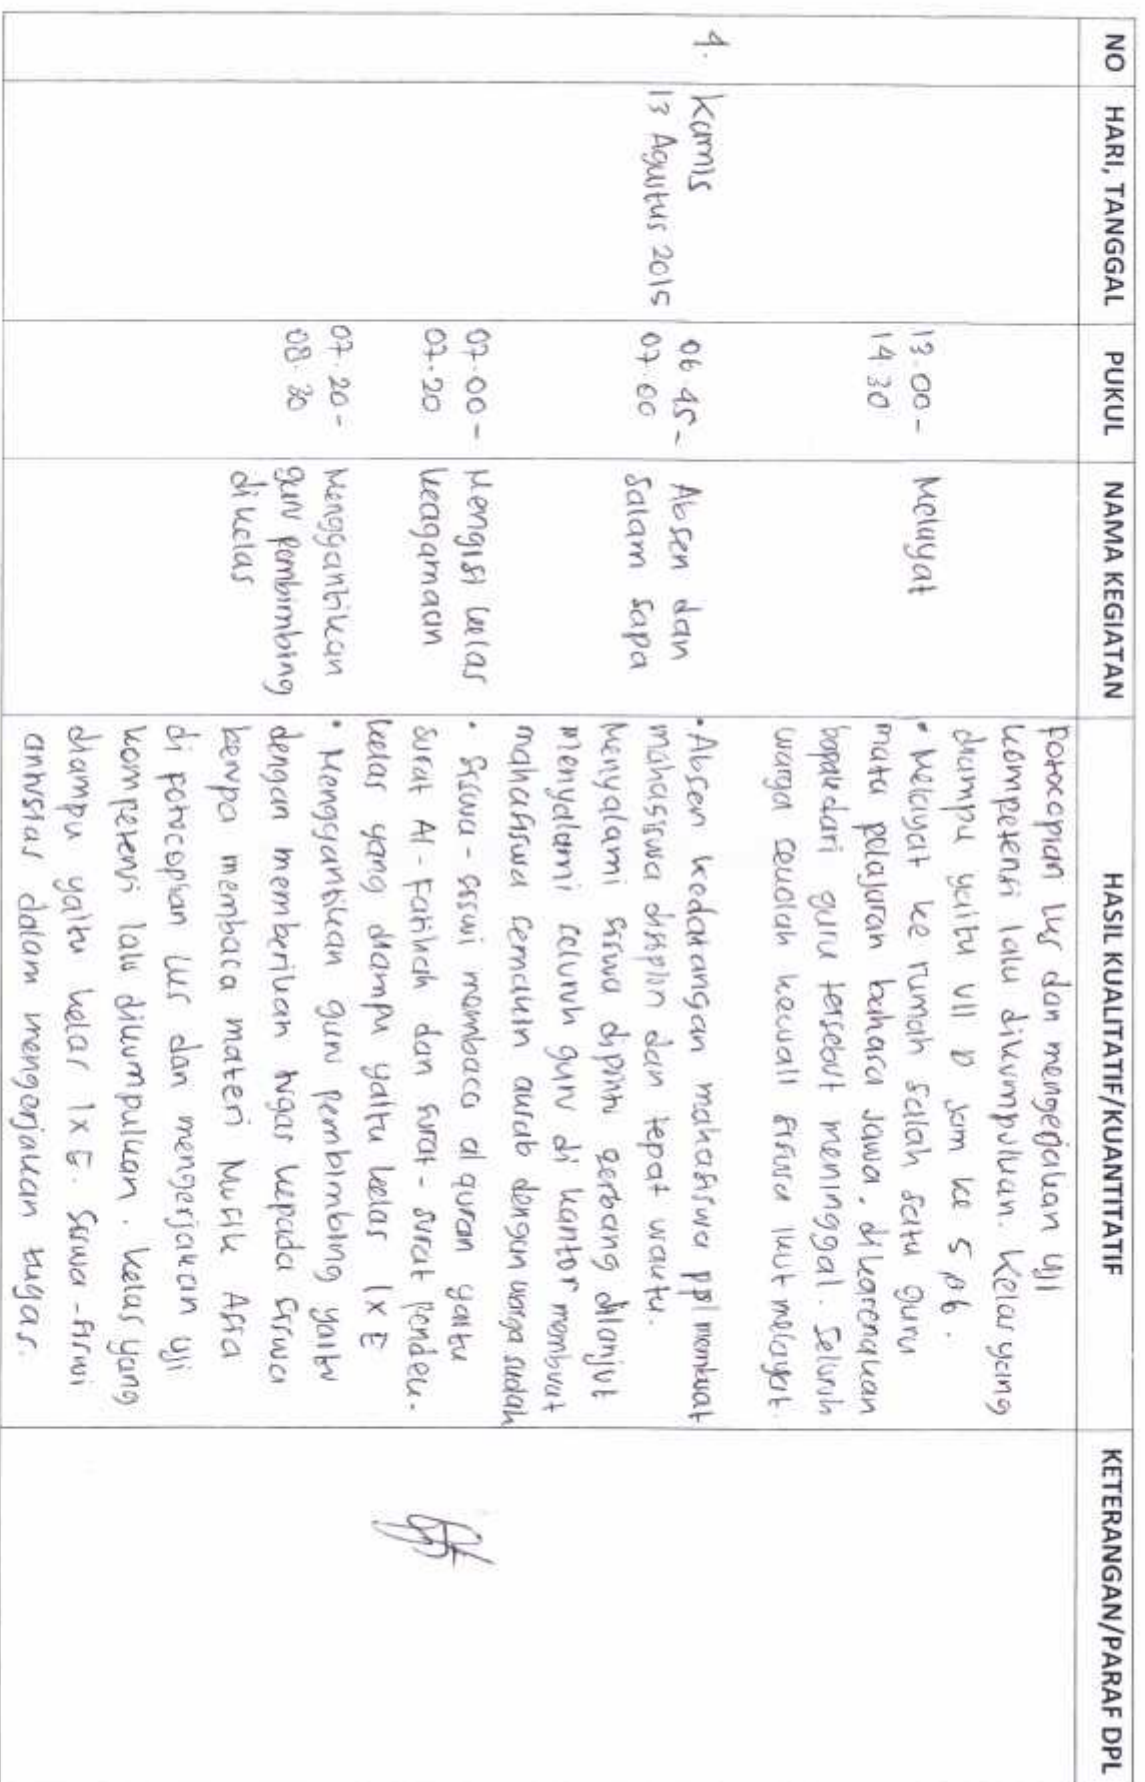 NO HARI, TANGGAL PUKUL NAMA KEGIATAN HASIL KUALITATIF/KUANTITATIF KETERANGAN/PARAF DPL
Fotocopian lks dan mengerjakan uji
kompetensi lalu dikumpulkan. Kelas yang
diampu yaitu VII D jam ke 5 &6.
13.00 -
14 30
Melayat
• Melayat ke rumah sallah satu guru
mata pelajaran bahasa jawa, dikarenakan
bapak dari guru tersebut meninggal. Seluruh
warga sekolah kecuali siswa ikut melayat.
4.
Kamis
13 Agustus 2015
06 45 -
07.00
Absen dan
Salam sapa
• Absen kedatangan mahasiswa ppl membuat
mahasiswa disiplin dan tepat waktu.
Menyalami siswa dipintu gerbang dilanjut
menyalami seluruh guru di kantor membuat
mahasiswa semakin akrab dengan warga sudah
07.00 -
07.20
Mengisi kelas
keagamaan
• Siswa - siswi membaca al quran yaitu
surat Al - Fatihah dan surat - surat pendek.
kelas yang diampu yaitu kelas IX E
07.20 -
08.30
Menggantikan
guru pembimbing
dikelas
• Menggantikan guru pembimbing yaitu
dengan memberikan tugas kepada siswa
berupa membaca materi Musik Asia
di fotocopian lks dan mengerjakan uji
kompetensi lalu dikumpulkan. kelas yang
diampu yaitu kelas IX E. Siswa - siswi
antusias dalam mengerjakan tugas.